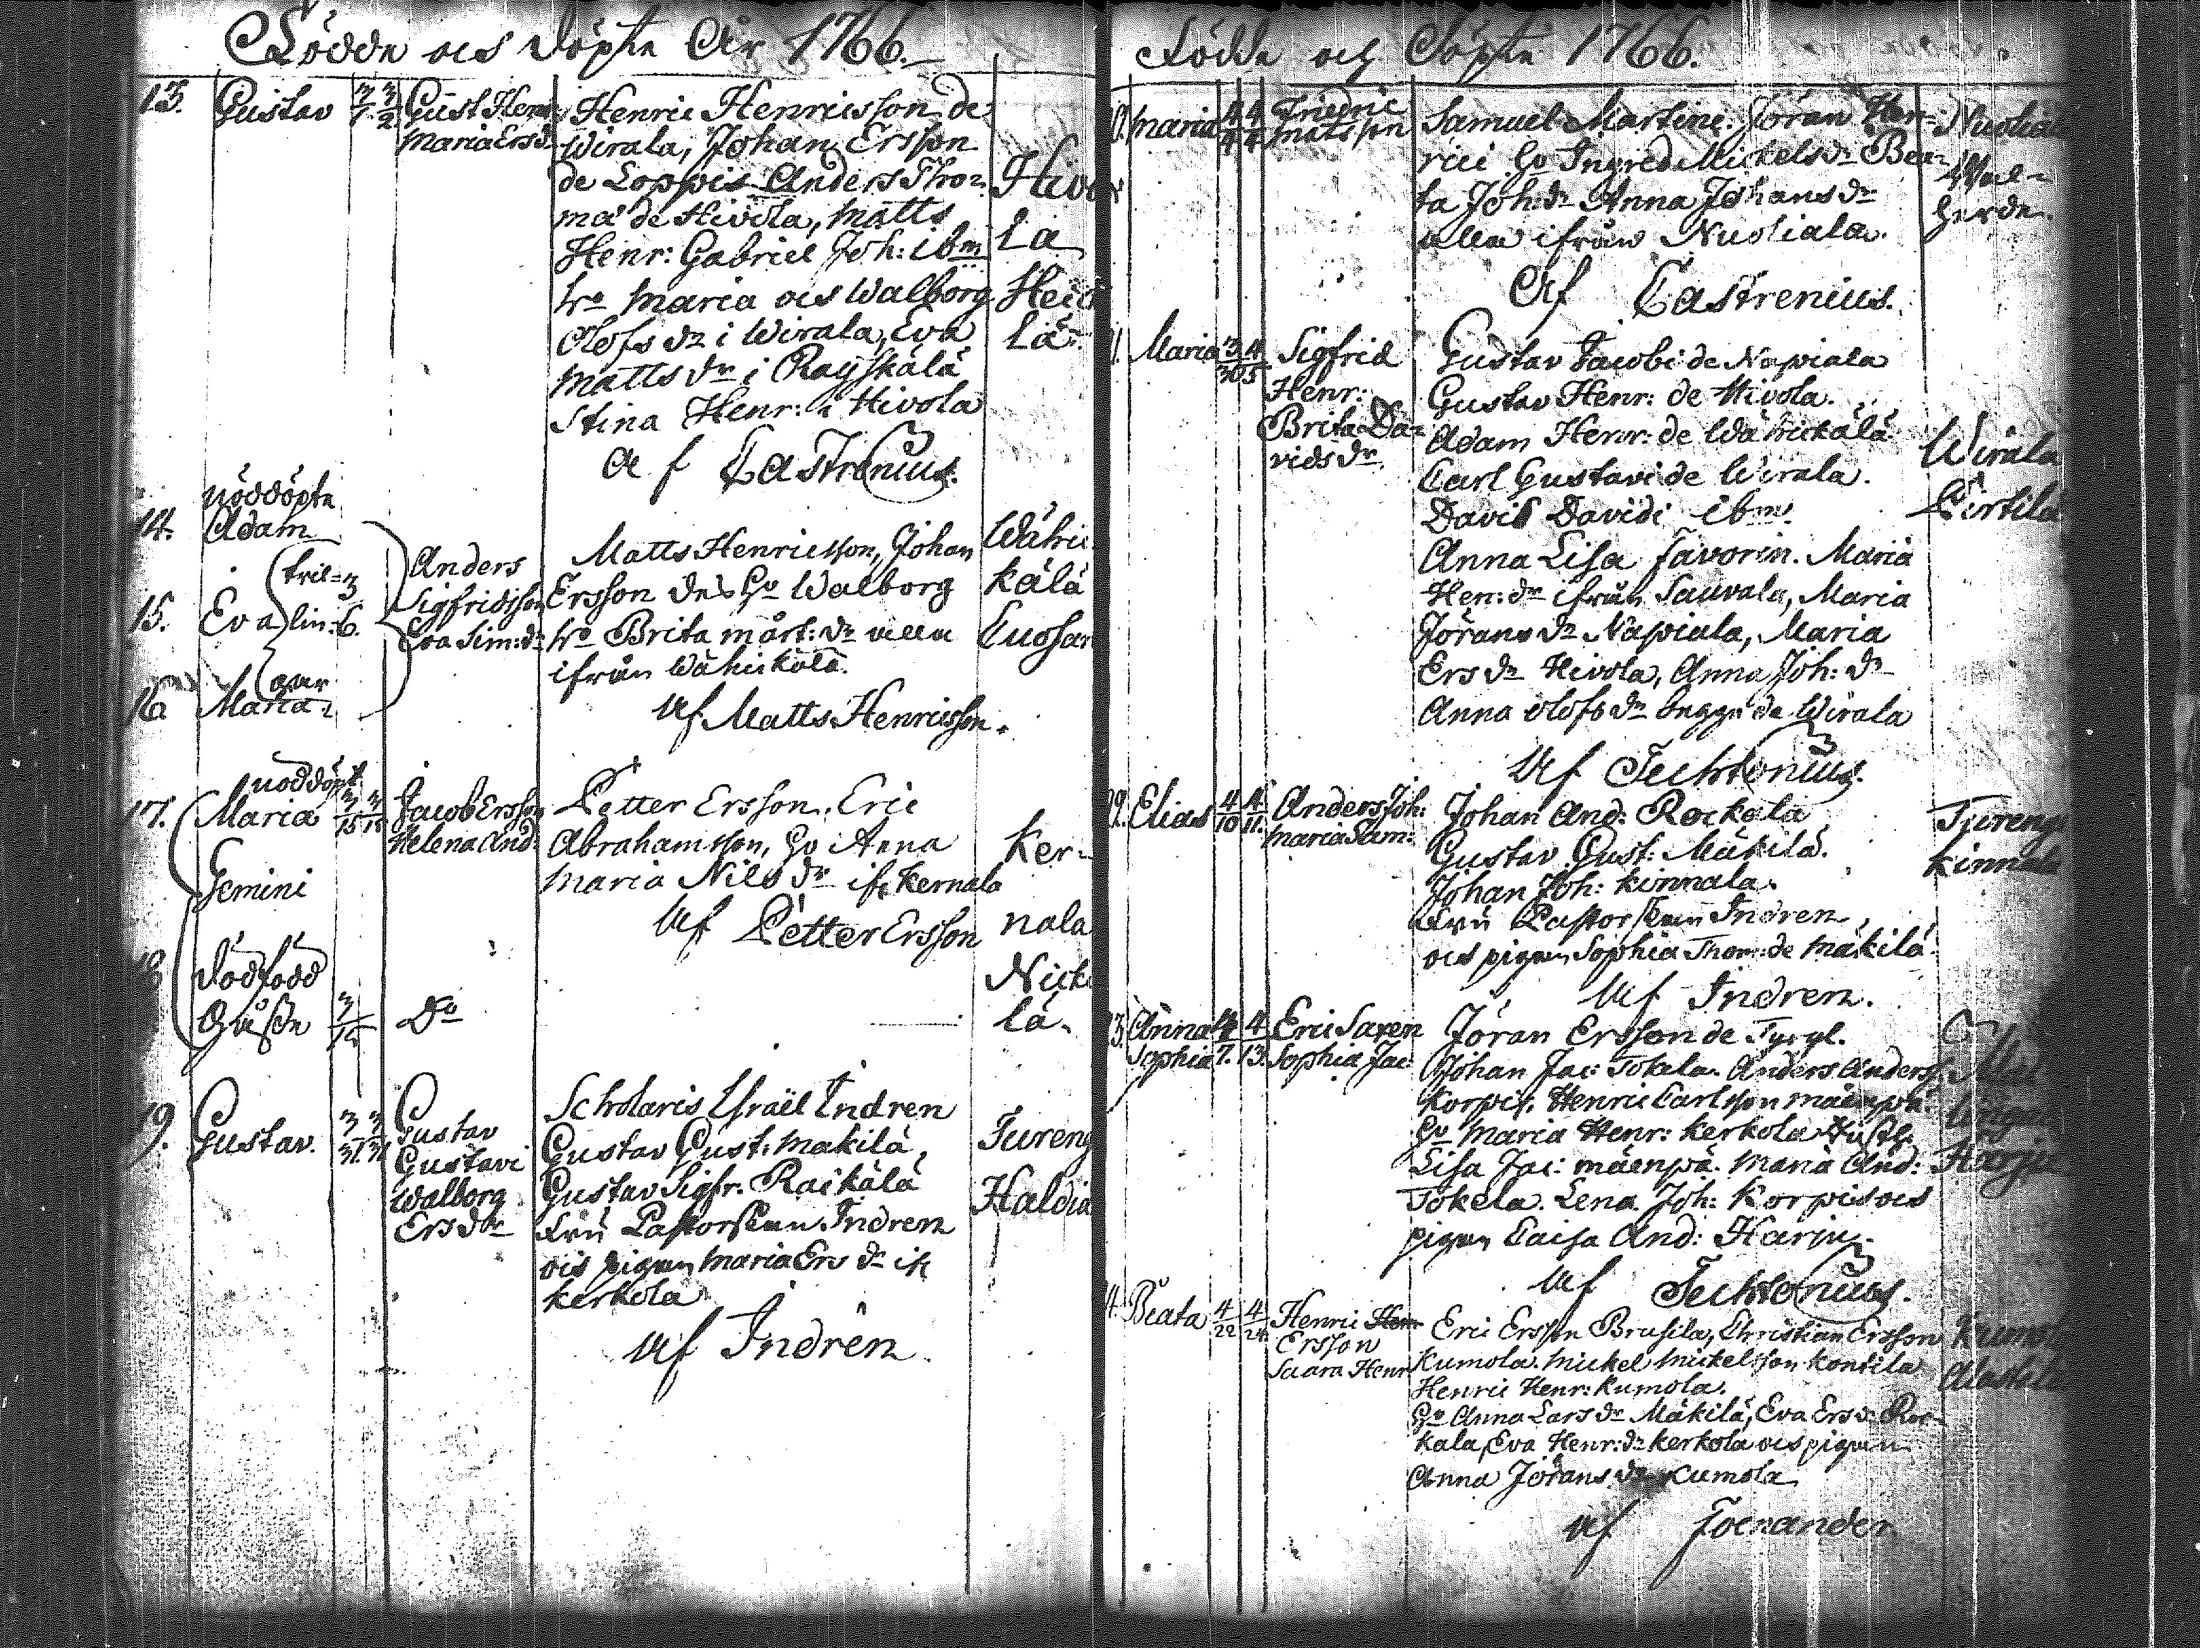 Födde och Döpte År 1766.
13. Gustav 3/1 3/2 Gust Henr: Maria Ersd:
Henric Henricsson de
Wirala, Johan Ersson
de Loppis Anders Tho-
mæ de Hivola, Matts
Henr: Gabriel Joh: ibm
hr Maria och Walborg
Olofs dr i Wirala, Eva
Matts dr i Räyskälä
Stina Henr: i Hivola
af Castrenius.
Hivo
la
Heick
lä
nöddöpte
14. Adam
15. Eva
16 Maria
tril-
lin-
gar
3
6.
Anders
Sigfridsson
Eva Sim: dr
Matts Henricsson, Johan
Ersson des Hu Walborg
hr Brita Mårt: dr alla
ifrån Wähickälä.
Af Matts Henricsson.
Wähic
kälä
nöddöpt
17. Maria 3/15 3/15 Jacob Ersson
Helena And:
Petter Ersson. Eric
Abrahamsson, Hu Anna
Maria Nils dr if: Kernala
Af Petter Ersson
Ker-
nala
Gemini
18 Dödfödd
Gåsse 3/15 Do
Nick
lä.
19. Gustav. 3/31 3/31
Gustav
Gustavi
Walborg
Ers dr
Scholaris Israël Indren
Gustav Gust: Makilä,
Gustav Sigfr. Raikälä
Fru Pastorskan Indren
och pigan Maria Ers dr if:
Kerkola
Af Indrén
Tureng
Haldia
Födde och Döpte 1766.
Maria 4/4 4/4 Friedric
Mats son
Samuel Martini. Jöran Hen-
rici Hu Ingred Mickels dr Bea-
ta Joh: dr Anna Johans dr
alla ifrån Nuoliala.
Af Castrenius.
Nuolial
Maria 3/30 4/5 Sigfrid
Henr:
Brita Da-
vids dr
Gustav Jacobi de Napiala
Gustav Henr: de Hivola.
Adam Henr: de Wähickälä
Carl Gustavi de Wirala.
David Davidi ibm.
Anna Lisa Favorin. Maria
Hen: dr ifrån Sauvala, Maria
Jörans dr Napiala, Maria
Ers dr Hivola, Anna Joh: dr
Anna Olofs dr begge de Wirala
Af Techtonius.
Wirala
Pirtila
Elias 4/10 4/11. Anders Joh:
Maria Sam:
Johan And: Rockala
Gustav Gust: Mäkilä.
Johan Joh: Kinnala.
Fru Pastorskan Indren,
och pigan Sophia Thom: de Mäkilä.
Af Indren.
Tureng
Kinnala
Anna
Sophia 4/7. 4/13. Eric Saxen
Sophia Jac:
Jöran Ersson de Tyryl.
Johan Jac: Tokela. Anders Anders:
Korpis. Henric Carlsson Mäenpä.
Hu Maria Henr: Kerkola
Lisa Jac: Mäenpä. Maria And:
Tokela. Lena Joh: Korpis och
pigan Caisa And: Harju.
Af Techtonius.
Beata 4/22 4/24 Henric
Ersson
Saara Henr
Eric Ersson Brusila, Christian Ersson
Kumola. Mickel Mickelsson Kontila
Henric Henr: Kumola.
Hu Anna Lars dr Mäkilä, Eva Ers dr Roc-
kala, Eva Henr: dr Kerkola och pigan
Anna Jörans dr Kumola
Af Fornander
Kumo